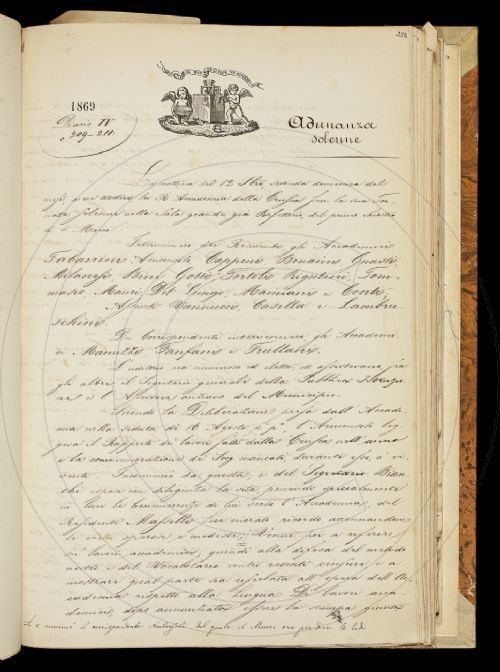 288
IL PIÙ BEL FIOR NE COGLIE
1869
Diario IV
c. 209-211.
Adunanza
solenne
La mattina del 12 7bre, seconda domenica del
mese, fu dalla R. Accademia della Crusca la sua Tor
nata solenne nella Sala grande, già Refettorio, del primo chiostro
di S. Marco.
Intervennero il Presidente gli Accademici
Tabarrini Arcangeli Capponi Bonaini Guasti
Milanesi Bini Gotti Tortoli Rigutini Tom-
maseo, Mauri, Del Lungo, Mamiani e Conti,
Vannucci, Casella e Lambru-
schini.
De' Corrispondenti intervennero gli Accademi
ci Manuzzi Fanfani e Trullani.
L'uditorio era numeroso ed eletto, vi assistevano fra
gli altri il Segretario generale della Pubblica Istruzio
ne e l' anziano del Municipio.
Secondo la Deliberazione presa dall' Accade
mia nella seduta di 16 Agosto p. p. l' Arciconsolo
il Rapporto dei lavori fatti dalla Crusca nell' anno
e la commemorazione dei Socj mancati durante esso ai
viventi. Incominciò da questa, e del Segretario Bian
chi espose con diligenza la vita ponendo specialmente
in luce le benemerenze di lui verso l' Accademia, del
Residente Masselli fece onorato ricordo accennandone
la vita operosa e modesta. Venne poi a riferire
sui lavori accademici, quindi alla difesa del metodo
nostro e del Vocabolario contro recenti censure, e a
mostrare qual parte sia riserbata all' opera dell' Ac-
cademia rispetto alla lingua. De' lavori acca-
demici, dopo annunziata essere la stampa giunta
e nominò il corrispondente Ambrosoli del quale il Mauri per dire le lodi